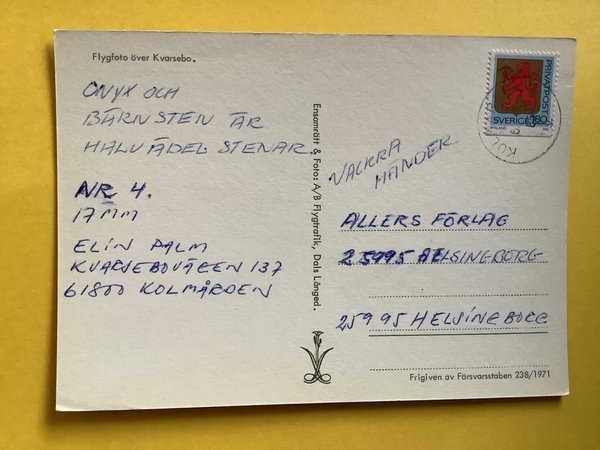 Flygfoto över Kvarsebo.
ONYX OCH
BÄRNSTEN ÄR
HALVÄDELSTENAR.
NR 4.
17MM
ELIN PALM
KVARSEBOVÄGEN 137
61800 KOLMÅRDEN
Ensamrätt & Foto: A/B Flygtrafik, Dals Långed.
PRIVATPOST
SVERIGE 180
VACKRA
HÄNDER
ALLERS FÖRLAG
25995 HELSINGBORG
25995 HELSINGBORG
Frigiven av Försvarsstaben 238/1971